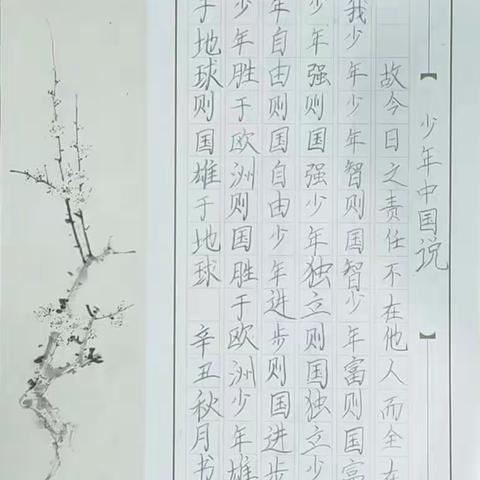 【少年中国说】
故今日之责任不在他人而全在
我少年少年智则国智少年富则国富
少年强则国强少年独立则国独立少
年自由则国自由少年进步则国进步
少年胜于欧洲则国胜于欧洲少年雄
于地球则国雄于地球 辛丑秋月书